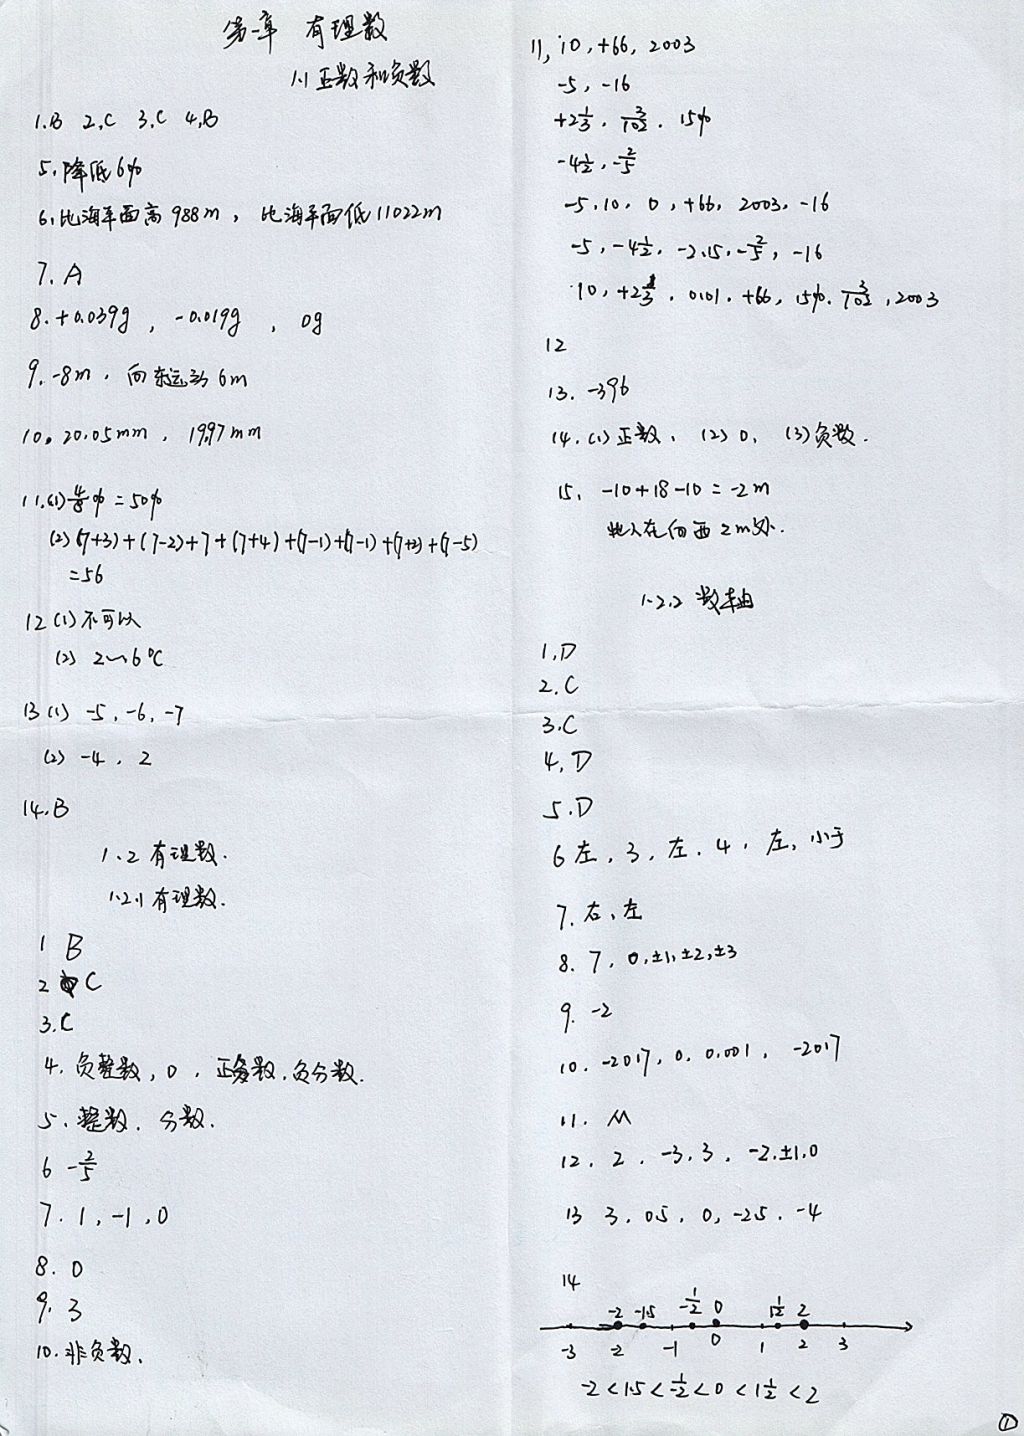 第一章 有理数
1.1 正数和负数
1.B 2.C 3.C 4.B
5.降低6%
6.比海平面高988m，比海平面低11022m
7.A
8.+0.039g，-0.019g，0g
9.-8m，向东运动6m
10.20.05mm，19.97mm
11.(1)4/8%=50%
(2)(7+3)+(7-2)+7+(7+4)+(7-1)+(7-1)+(7+2)+(7-5)
=56
12(1)不可以
(2) 2~6℃
13(1) -5，-6，-7
(2) -4，2
14.B
1.2 有理数.
1.2.1 有理数.
1 B
2 C
3.C
4.负整数，0，正分数，负分数.
5.整数，分数.
6 -2/5
7.1，-1，0
8.0
9.3
10.非负数.
11, 10，+66，2003
-5，-16
+2 1/3，3/102，15%
-4 1/2，-2/5
-5，10，0，+66，2003，-16
-5，-4 1/2，-2.15，-2/5，-16
10，+2 1/3，0.01，+66，15%，3/102，2003
12
13.-396
14.(1)正数，(2)0，(3)负数.
15，-10+18-10=-2m
此人在向西2m处.
1.2.2 数轴
1.D
2.C
3.C
4.D
5.D
6 左，3，左，4，左，小于
7.右，左
8.7，0，±1，±2，±3
9.-2
10.-2017，0，0.001，-2017
11. M
12.2，-3，3，-2，±1，0
13 3，0.5，0，-2.5，-4
14
-2 -1.5 -1/2 0 1 1/2 2
-3 -2 -1 0 1 2 3
-2<1.5<-1/2<0<1 1/2<2
①